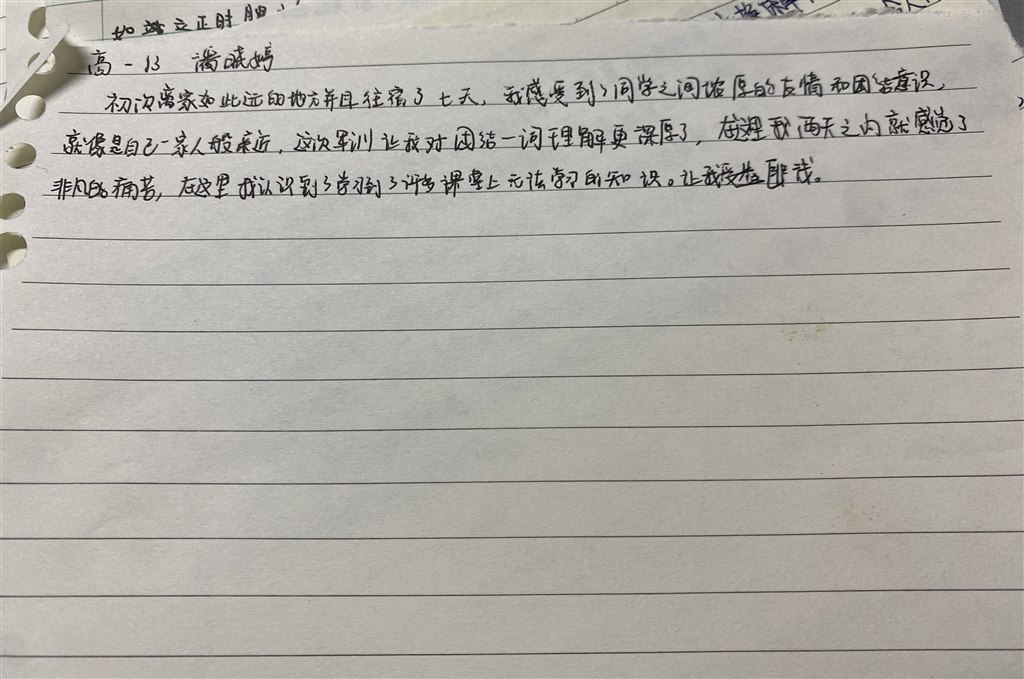 如 正时
高一 13 潘晓婷
初次离家如此远的地方并且往宿了七天，我感受到了同学之间浓厚的友情和团结意识，
就像是自己一家人般亲近，这次军训让我对团结一词理解更深厚了，在这里我两天之内就感冒了
非凡的痛苦，在这里我认识到了学习到了许多课堂上无法学习的知识。让我受益匪浅。